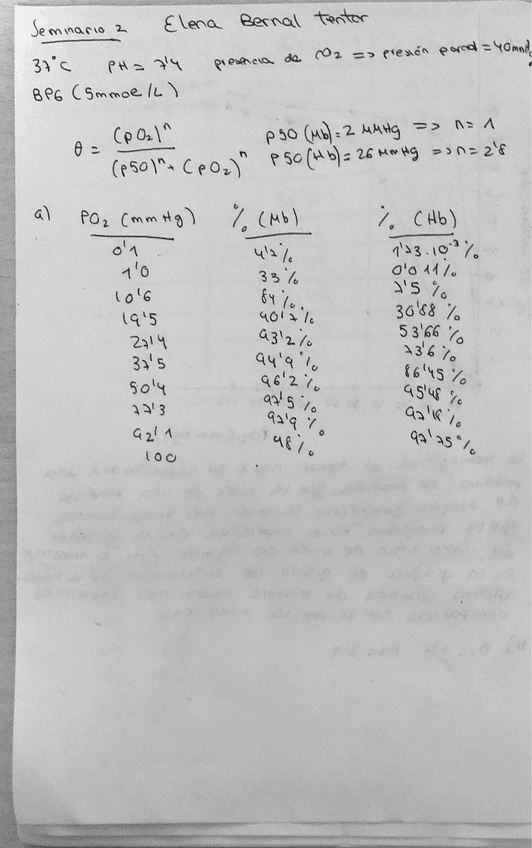 Seminario 2 Elena Bernal tentor
37°C PH = 7'4 presencia de CO2 => presión parcial = 40mmHg
BPG (5mmol/L)
θ = (pO2)^n / (p50)^n + (pO2)^n
p50 (Mb) = 2 mmHg => n = 1
p50 (Hb) = 26 mmHg => n = 2'8
a) PO2 (mmHg) % (Mb) % (Hb)
0'1 4'7% 1'73·10^-3 %
1'0 33% 0'011%
10'6 84% 7'5 %
19'5 90'7% 30'88 %
27'4 93'2% 53'66 %
37'5 94'9% 73'6 %
50'4 96'2% 86'45 %
77'3 97'5% 95'48 %
92'1 97'9 % 97'18 %
100 98% 97'75 %